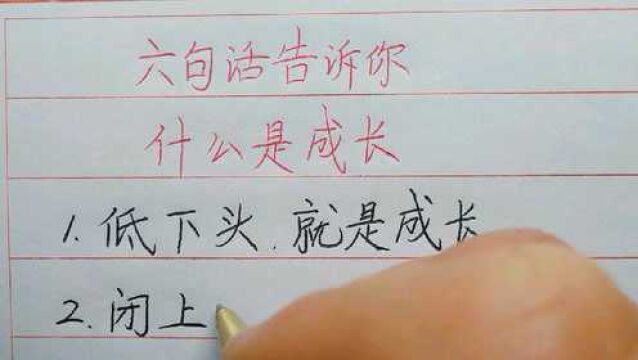 六句话告诉你
什么是成长
1.低下头.就是成长
2.闭上